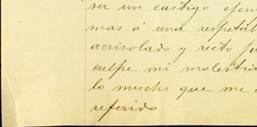 ser un castigo ejem
mas á una respetab
acrisolado y recto ju
culpe mi molestia
lo mucho que me
referido